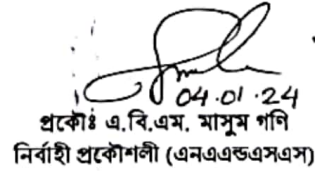 04.01.24
প্রকৌঃ এ.বি.এম. মাসুম গণি
নির্বাহী প্রকৌশলী (এনএএন্ডএসএস)